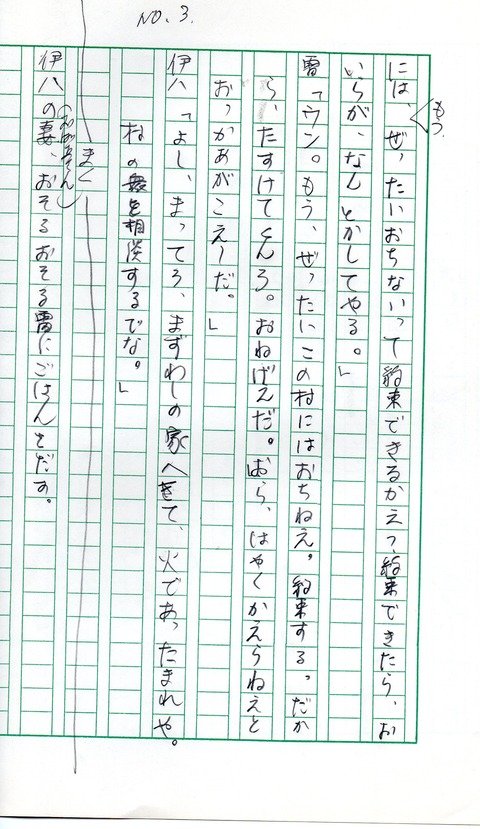 NO. 3.
もう、
には、ぜったいおちないって約束できるかえっ、約束できたら、お
いらが、なんとかしてやる。」
雷「ウン。もう、ぜったいにこの村にはおちねえ。約束する。だか
ら、たすけてくんろ。おねげえだ。おら、はやくかえらねえと
おっかあがこえーだ。」
伊八「よし、まってろ、まずわしの家へきて、火であったまれや。
村の衆と相談するでな。」
まく
(おかあさん)
伊八の妻、おそるおそる雷にごはんをだす。